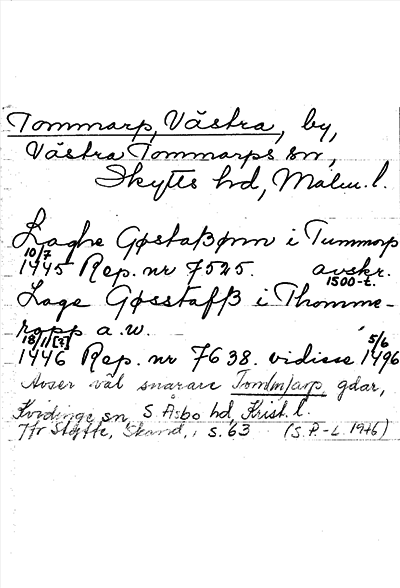 Tommarp, Västra, by,
Västra Tommarps sn,
Skytts hd, Malm. l.
Laghe Gøstaßønn i Tummorp
10/7
1445 Rep. nr 7525. avskr.
1500-t.
Lage Gøsstaffß i Thomme-
ropp a.w.
18/11[?] 5/6
1446 Rep. nr 7638. vidisse 1496
Avser väl snarare Tom(m)arp, gdar,
Kvidinge sn S. Åsbo hd, Krist. l.
Jfr Styffe, Skand., s. 63 (S.P.-L. 1976)